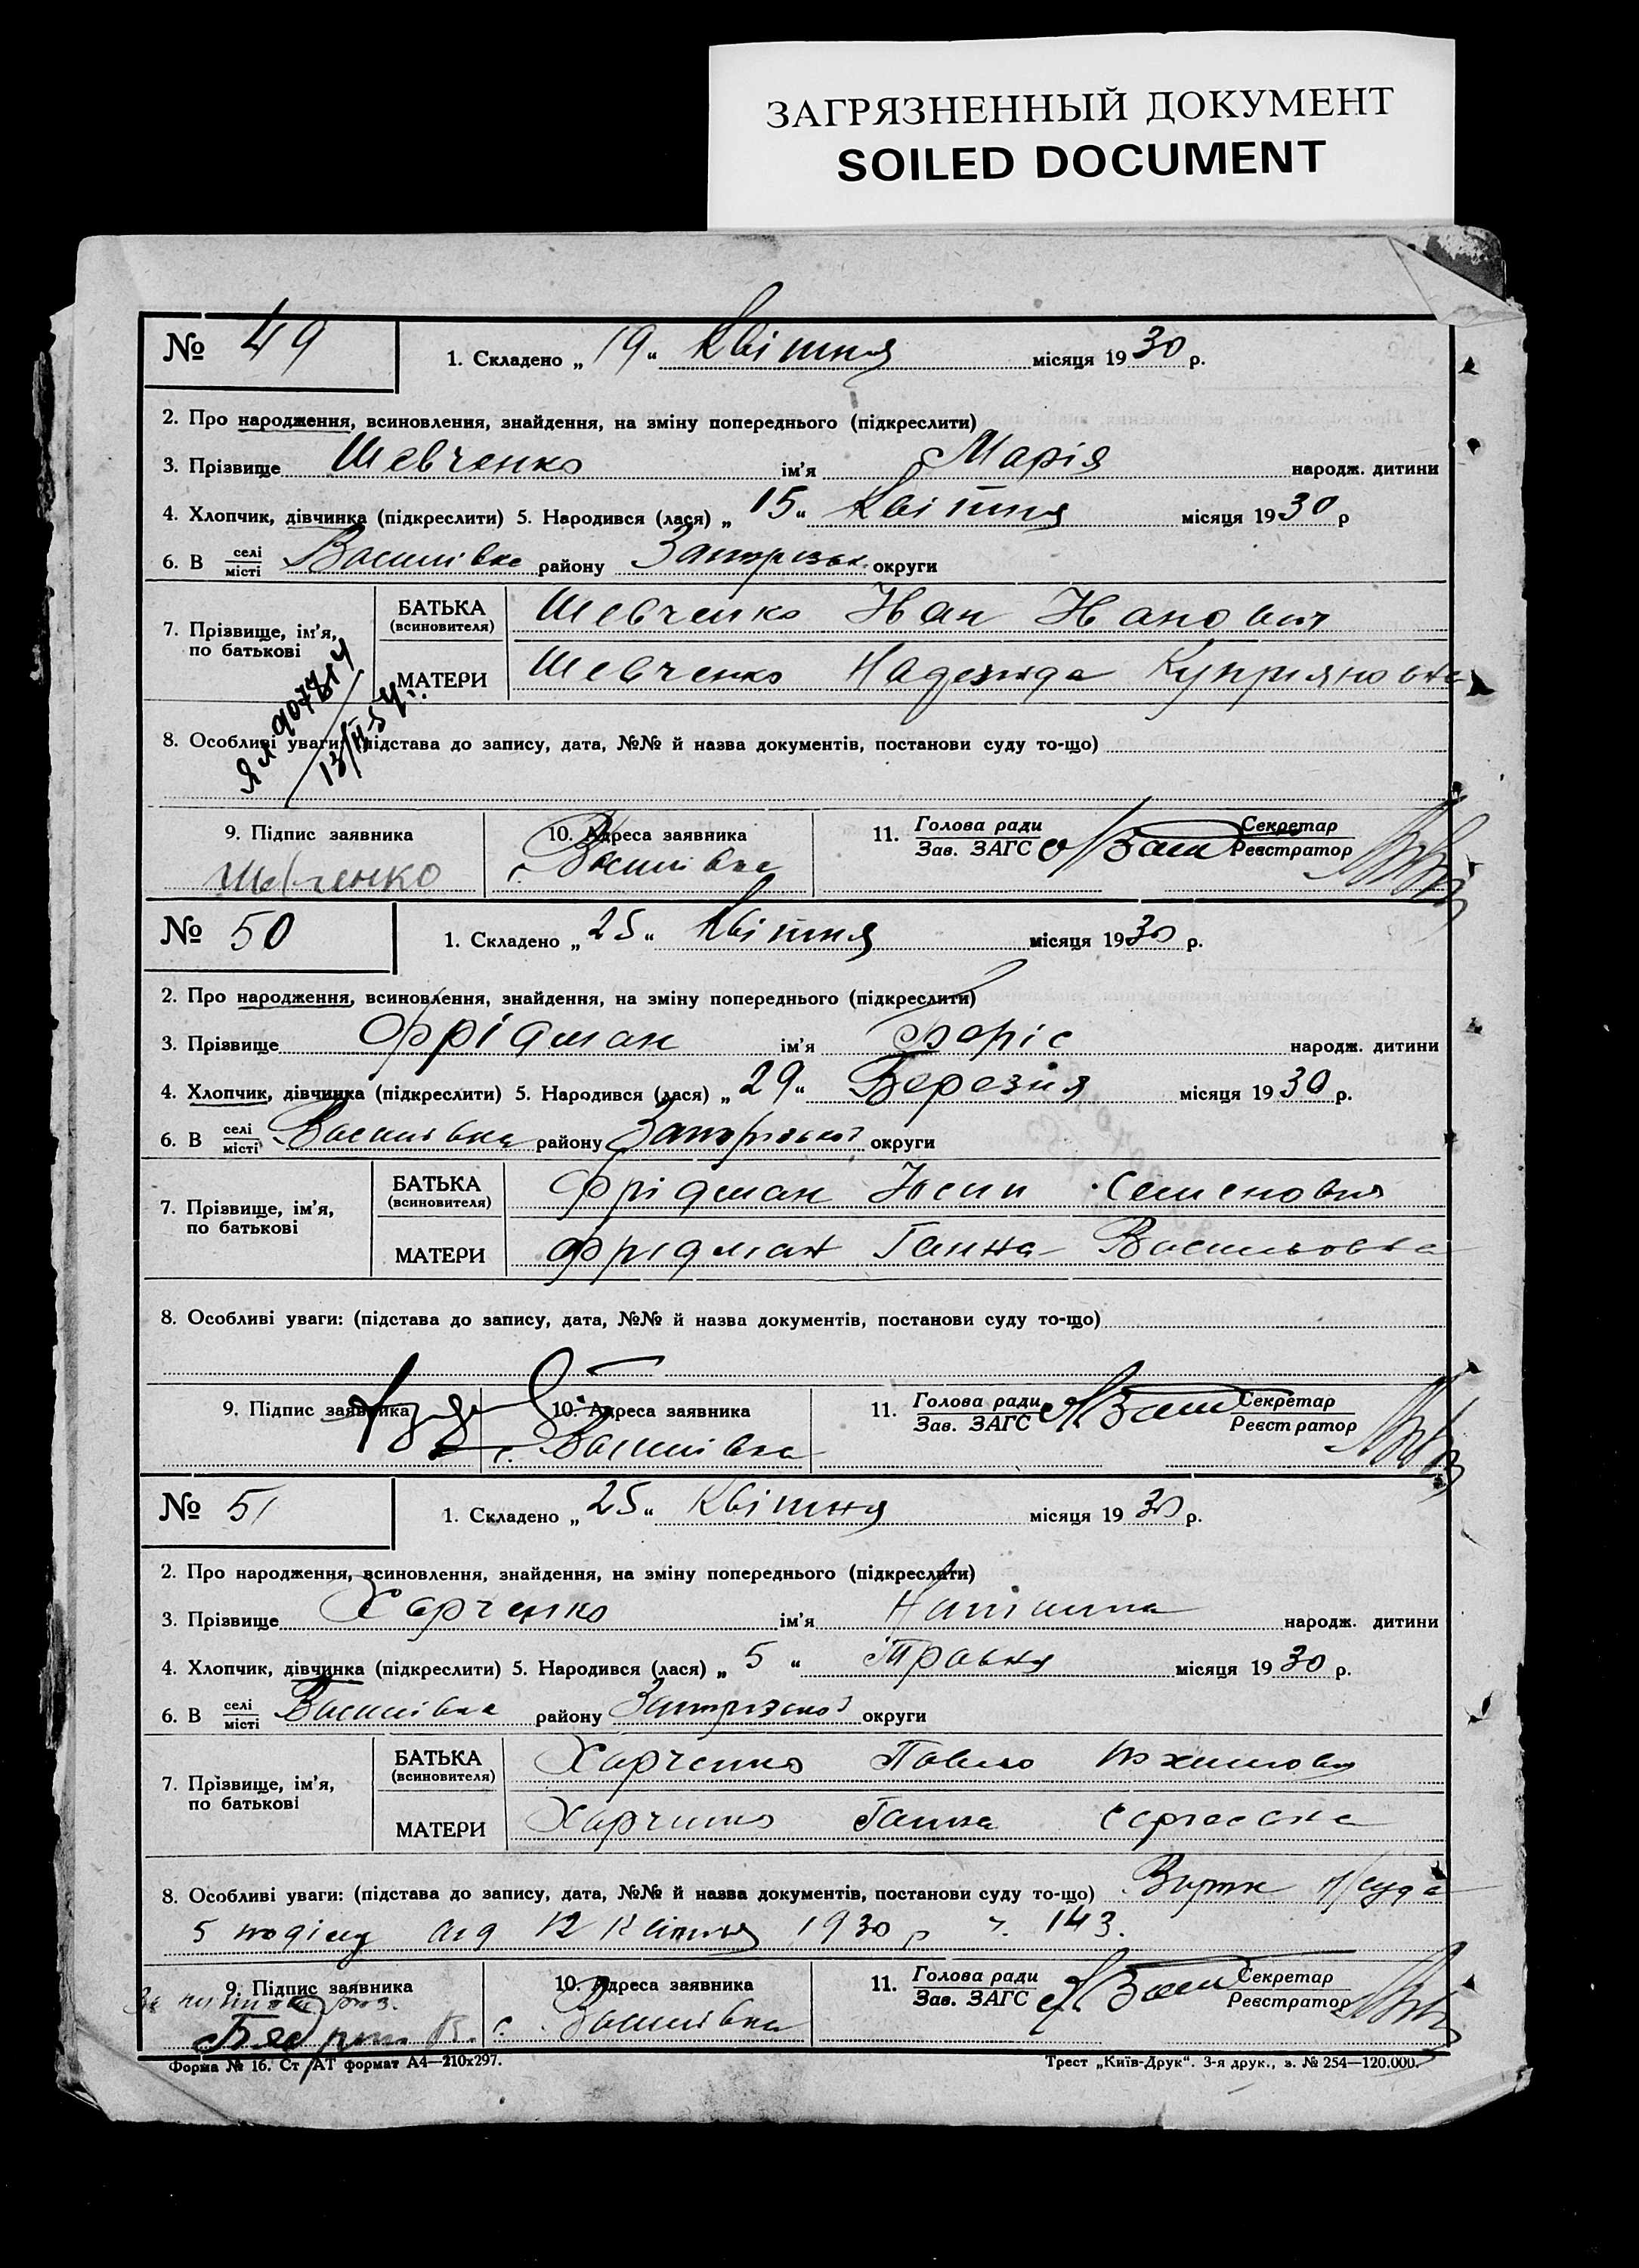 ЗАГРЯЗНЕННЫЙ ДОКУМЕНТ
SOILED DOCUMENT
№ 49
1. Складено „19“ Квітня місяця 1930 р.
2. Про народження, всиновлення, знайдення, на зміну попереднього (підкреслити)
3. Прізвище Шевченко ім’я Марія народж. дитини
4. Хлопчик, дівчинка (підкреслити) 5. Народився (лася) „15“ Квітня місяця 1930 р
6. В селі місті Василівка району Запорізьк. округи
7. Прізвище, ім’я, по батькові
БАТЬКА (всиновителя) Шевченко Иван
МАТЕРИ Шевченко Надежда Куприяновна
8. Особливі уваги: (підстава до запису, дата, №№ й назва документів, постанови суду то-що)
9. Підпис заявника 10. Адреса заявника 11. Голова ради Зав. ЗАГС Секретар Реєстратор
Шевченко с. Василівка
№ 50
1. Складено „25“ Квітня місяця 1930 р.
2. Про народження, всиновлення, знайдення, на зміну попереднього (підкреслити)
3. Прізвище Фрідман ім’я Боріс народж. дитини
4. Хлопчик, дівчинка (підкреслити) 5. Народився (лася) „29“ Березня місяця 1930 р.
6. В селі місті Василівка району Запорізької округи
7. Прізвище, ім’я, по батькові
БАТЬКА (всиновителя) Фрідман Семенович
МАТЕРИ Фрідман Ганна Васильовна
8. Особливі уваги: (підстава до запису, дата, №№ й назва документів, постанови суду то-що)
9. Підпис заявника 10. Адреса заявника 11. Голова ради Зав. ЗАГС Секретар Реєстратор
с. Василівка
№ 51
1. Складено „25“ Квітня місяця 1930 р.
2. Про народження, всиновлення, знайдення, на зміну попереднього (підкреслити)
3. Прізвище Харченко ім’я народж. дитини
4. Хлопчик, дівчинка (підкреслити) 5. Народився (лася) „5“ Травня місяця 1930 р.
6. В селі місті Василівка району Запорізької округи
7. Прізвище, ім’я, по батькові
БАТЬКА (всиновителя) Харченко Павло
МАТЕРИ Харченко Ганна
8. Особливі уваги: (підстава до запису, дата, №№ й назва документів, постанови суду то-що) н/суда
5 від 12 Квітня 1930 р ч. 143.
9. Підпис заявника 10. Адреса заявника 11. Голова ради Зав. ЗАГС Секретар Реєстратор
с. Василівка
Форма № 16. Ст АТ формат А4—210х297. Трест „Київ-Друк“. 3-я друк., з. № 254—120.000.